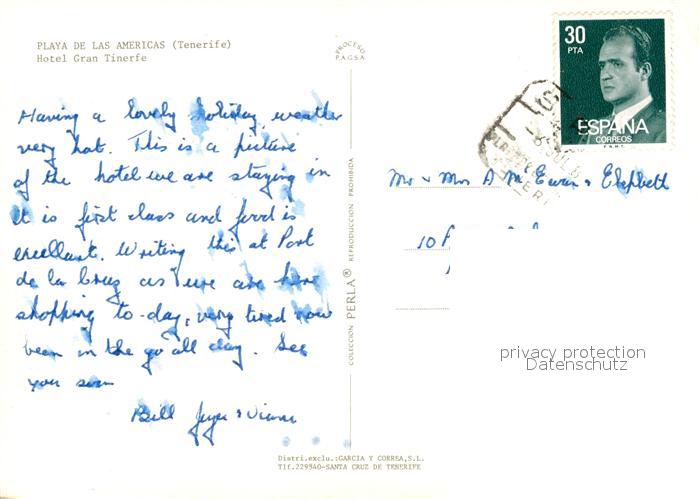 PLAYA DE LAS AMERICAS (Tenerife)
Hotel Gran Tinerfe
PROCESO
P.A.G.S.A.
30
PTA
ESPAÑA
CORREOS
F.N.M.T.
Having a lovely holiday, weather
very hot. This is a picture
of the hotel we are staying in
it is first class and food is
excellent. Writing this at Port
de la Cruz as we are here
shopping to-day, very tired now
been on the go all day. See
you soon
Bill Joyce &
Mr & Mrs A Mc Ewan & Elspbett
10
COLECCION PERLA® REPRODUCCION PROHIBIDA
privacy protection
Datenschutz
Distri.exclu.:GARCIA Y CORREA,S.L.
Tlf.229340-SANTA CRUZ DE TENERIFE